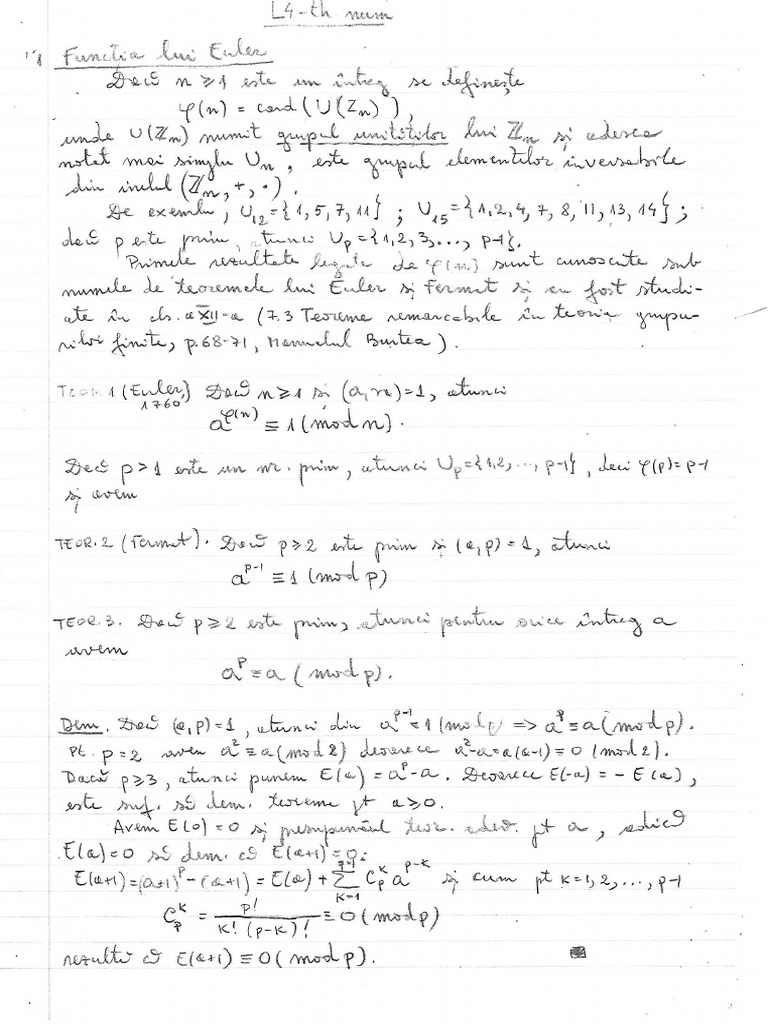 L4-th num
1 Funcția lui Euler
Dacă n ≥ 1 este un întreg se definește
φ(n) = card(U(Zn)),
unde U(ℤn) numit grupul unităților lui ℤn și adesea
notat mai simplu Un, este grupul elementelor inversabile
din inelul (ℤn, +, ·).
De exemplu, U12={1, 5, 7, 11} ; U15={1, 2, 4, 7, 8, 11, 13, 14} ;
dacă p este prim, atunci Up={1, 2, 3, ..., p-1}.
Primele rezultate legate de φ(n) sunt cunoscute sub
numele de teoremele lui Euler și Fermat și au fost studi-
ate în cls. a XII-a (7.3 Teoreme remarcabile în teoria grupu-
rilor finite, p.68-71, Manualul Burtea).
TEOR. 1 (Euler, 1760) Dacă n ≥ 1 și (a, n)=1, atunci
a^φ(n) ≡ 1 (mod n).
Dacă p > 1 este un nr. prim, atunci Up={1,2, ..., p-1}, deci φ(p)= p-1
și avem
TEOR. 2 (Fermat). Dacă p ≥ 2 este prim și (a, p) = 1, atunci
a^p-1 ≡ 1 (mod p)
TEOR. 3. Dacă p ≥ 2 este prim, atunci pentru orice întreg a
avem
a^p ≡ a (mod p).
Dem. Dacă (a, p)=1, atunci din a^p-1 ≡ 1 (mod p) => a^p ≡ a (mod p).
Pt. p = 2 avem a² ≡ a (mod 2) deoarece a²-a = a(a-1) ≡ 0 (mod 2).
Dacă p ≥ 3, atunci punem E(a) = a^p - a. Deoarece E(-a) = - E(a),
este suf. să dem. teorema pt a ≥ 0.
Avem E(0) = 0 și presupunând teor. adev. pt a, adică
E(a) = 0 să dem. că E(a+1) = 0:
E(a+1) = (a+1)^p - (a+1) = E(a) + ∑_{k=1}^{p-1} C_p^k a^p-k și cum pt k = 1, 2, ..., p-1
C_p^k = p! / k! (p-k)! ≡ 0 (mod p)
rezultă că E(a+1) ≡ 0 (mod p).